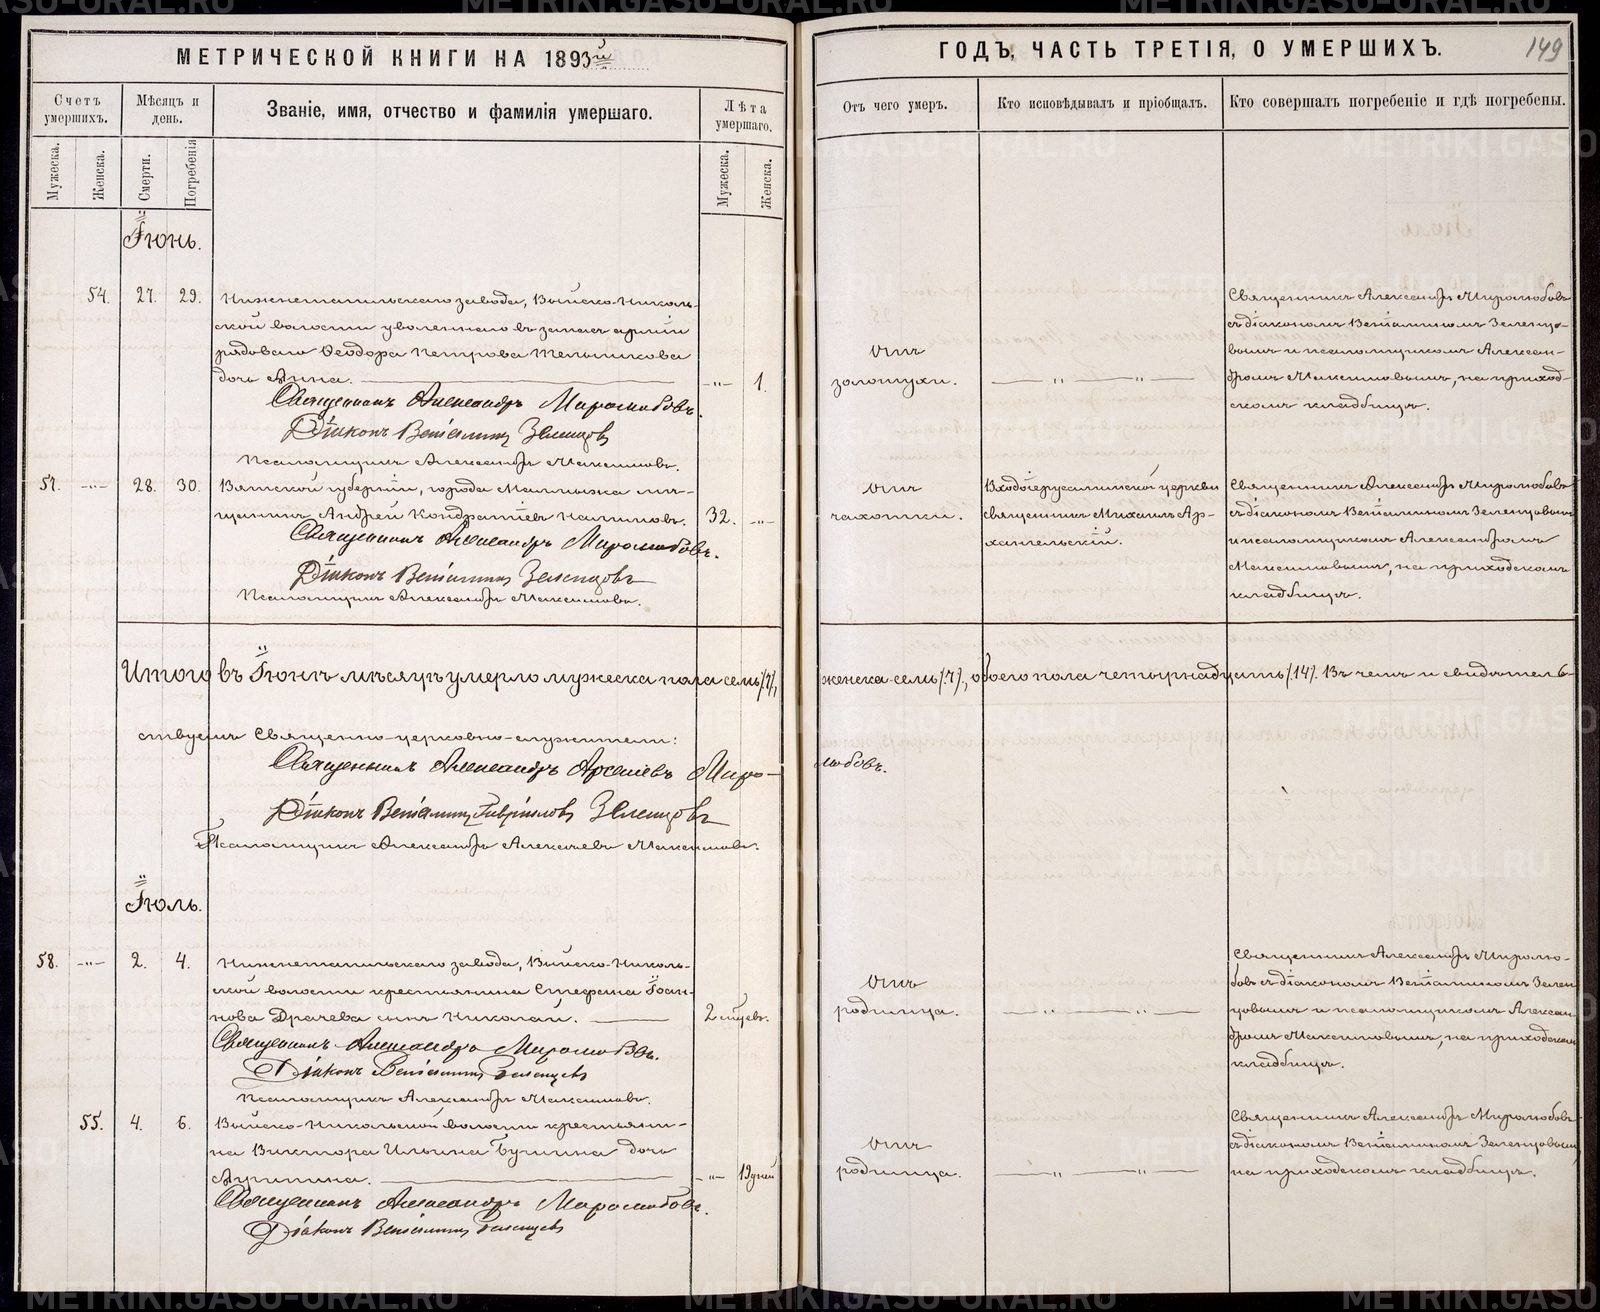 МЕТРИЧЕСКОЙ КНИГИ НА 1893й
Счетъ умершихъ.
Мужеска.
Женска.
Мѣсяцъ и день.
Смерти.
Погребенія
Званіе, имя, отчество и фамилія умершаго.
Лѣта умершаго.
Мужеска.
Женска.
ГОДЪ, ЧАСТЬ ТРЕТІЯ, О УМЕРШИХЪ.
149
Отъ чего умеръ.
Кто исповѣдывалъ и пріобщалъ.
Кто совершалъ погребеніе и гдѣ погребены.
Іюнь.
54. 27. 29.
Нижнетагильскаго завода, Выйско-Николь-
ской волости уволеннаго въ запасъ арміи
рядоваго Ѳеодора Петрова Мельникова
дочь Анна. -"- 1.
Священникъ Александръ Миролюбовъ.
Діаконъ Веніаминъ Зеленцовъ
Псаломщикъ Александръ Максимовъ.
Отъ
золотухи.
— " — " —
Священникъ Александръ Миролюбовъ
съ діакономъ Веніаминомъ Зеленцо-
вымъ и псаломщикомъ Алексан-
дромъ Максимовымъ, на приход-
скомъ кладбищѣ.
57. -"- 28. 30.
Вятской губерніи, города Малмыжа мѣ-
щанинъ Андрей Кондратіевъ Налимовъ. 32. -"-
Священникъ Александръ Миролюбовъ.
Діаконъ Веніаминъ Зеленцовъ
Псаломщикъ Александръ Максимовъ.
Отъ
чахотки.
Входоіерусалимской церкви
священникъ Михаилъ Ар-
хангельскій.
Священникъ Александръ Миролюбовъ
съ діакономъ Веніаминомъ Зеленцовымъ
и псаломщикомъ Александромъ
Максимовымъ, на приходскомъ
кладбищѣ.
Итого въ Іюнѣ мѣсяцѣ умерло мужеска пола семь /7/,
женска семь /7/, обоего пола четырнадцать /14/. Въ чемъ и свидѣтель-
ствуемъ Священно-церковно-служители:
Священникъ Александръ Арсеніевъ Миро-
любовъ.
Діаконъ Веніаминъ Гавріиловъ Зеленцовъ
Псаломщикъ Александръ Алексѣевъ Максимовъ.
Іюль.
58. -"- 2. 4.
Нижнетагильскаго завода, Выйско-Николь-
ской волости крестьянина Стефана Іоан-
нова Драчева сынъ Николай. 2 мѣсев.
Священникъ Александръ Миролюбовъ.
Діаконъ Веніаминъ Зеленцовъ
Псаломщикъ Александръ Максимовъ.
Отъ
родимца.
— " — " —
Священникъ Александръ Миролю-
бовъ съ діакономъ Веніаминомъ Зелен-
цовымъ и псаломщикомъ Алексан-
дромъ Максимовымъ, на приходскомъ
кладбищѣ.
55. 4. 6.
Выйско-Никольской волости крестьяни-
на Виктора Ильина дочь
-"- дней
Священникъ Александръ Миролюбовъ.
Діаконъ Веніаминъ Зеленцовъ
Отъ
родимца.
— " — " —
Священникъ Александръ Миролюбовъ
съ діакономъ Веніаминомъ Зеленцовымъ,
на приходскомъ кладбищѣ.
METRIKI.GASO-URAL.RU